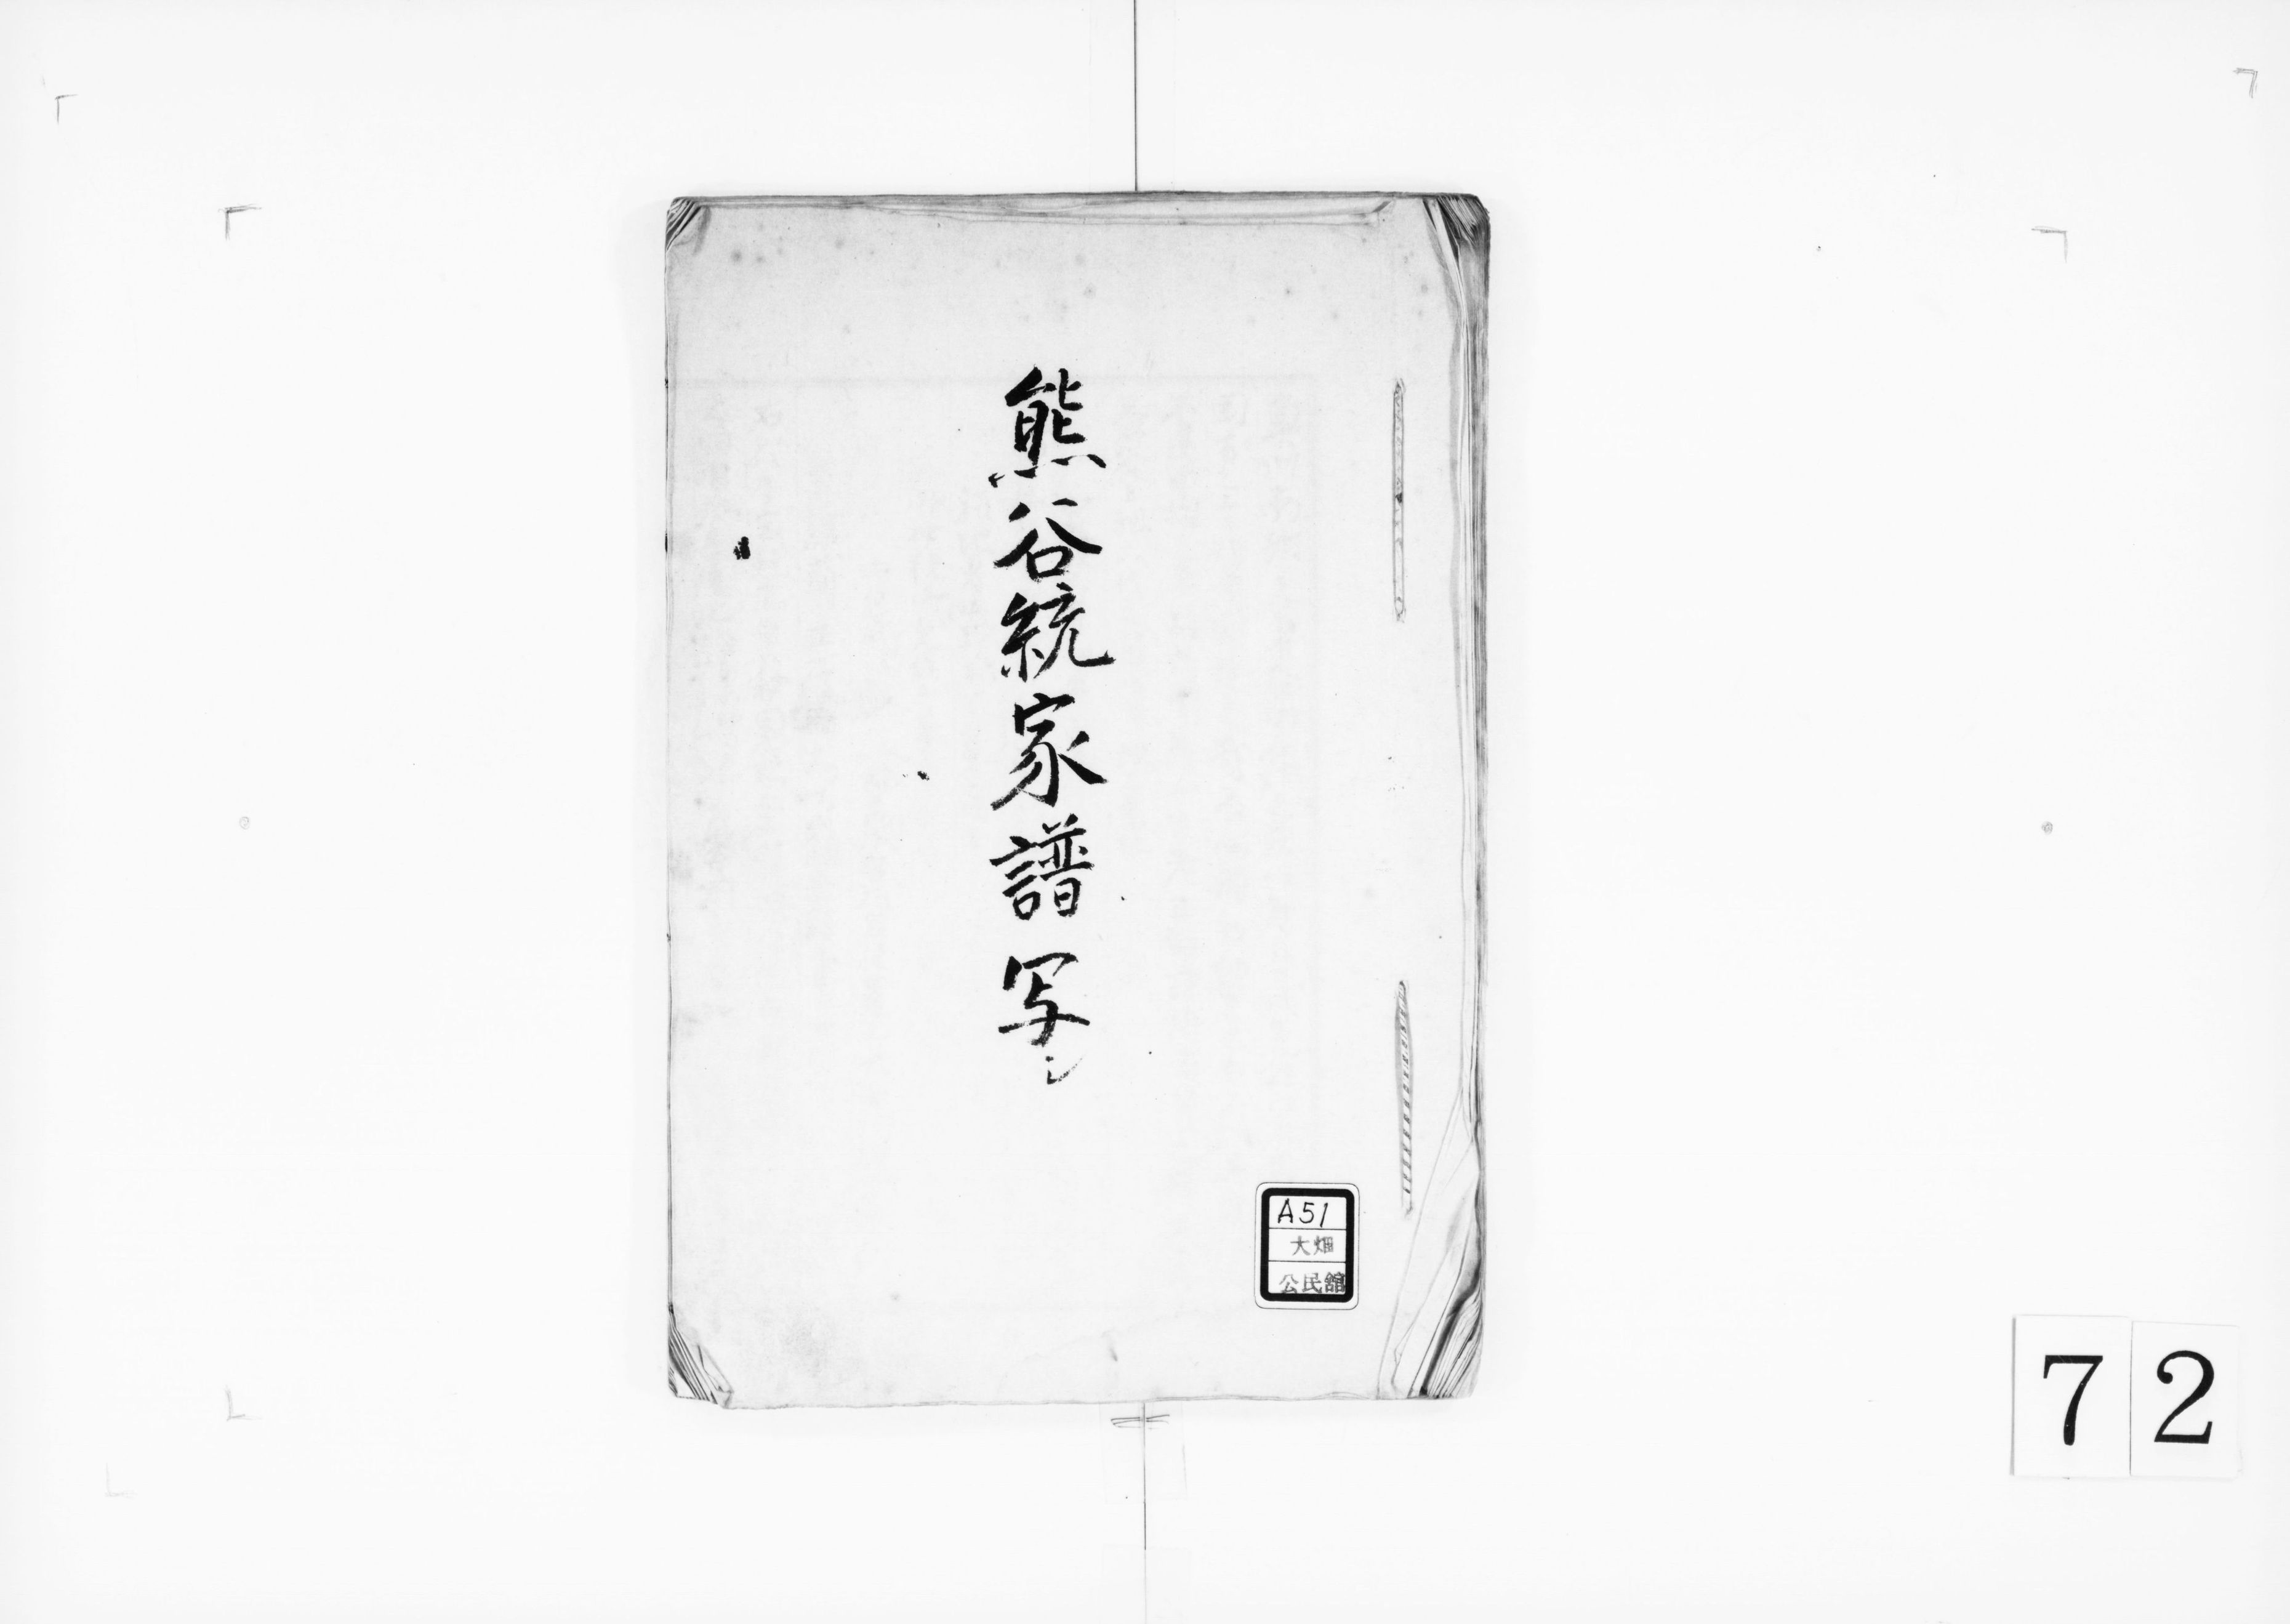 熊谷統家譜写シ
A51
大畑
公民館
72